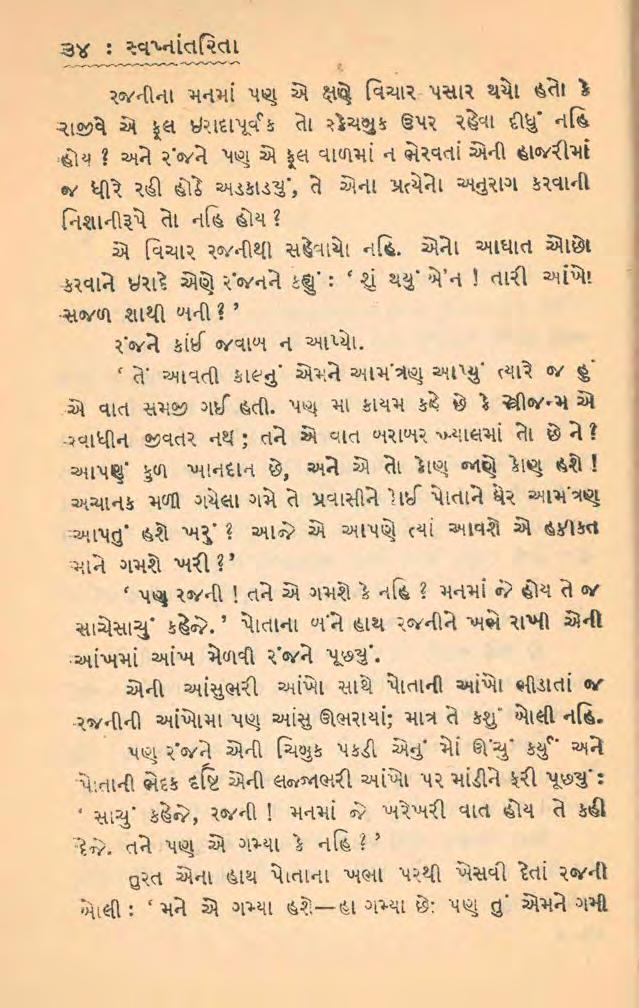 ૩૪ : સ્વપ્નાંતરિતા
રજનીના મનમાં પણ એ ક્ષણે વિચાર પસાર થયો હતો કે
રાજીવે એ ફૂલ ઇરાદાપૂર્વક તો રકેચબુક ઉપર રહેવા દીધું નહિ
હોય ? અને રંજને પણ એ ફૂલ વાળમાં ન ભેરવતાં એની હાજરીમાં
જ ધીરે રહી હોઠે અડકાડયું, તે એના પ્રત્યેનો અનુરાગ કરવાની
નિશાનીરૂપે તો નહિ હોય ?
એ વિચાર રજનીથી સહેવાયો નહિ. એનો આઘાત ઓછો
કરવાને ઇરાદે એણે રંજનને કહ્યું : ‘ શું થયું બે’ન ! તારી આંખો
સજળ શાથી બની ? ’
રંજને કાંઈ જવાબ ન આપ્યો.
‘ તેં આવતી કાલનું એમને આમંત્રણ આપ્યું ત્યારે જ હું
એ વાત સમજી ગઈ હતી. પણ મા કાયમ કહે છે કે સ્ત્રીજન્મ એ
સ્વાધીન જીવતર નથ ; તને એ વાત બરાબર ખ્યાલમાં તો છે ને ?
આપણું કુળ ખાનદાન છે, અને એ તો કોણ જાણે કોણ હશે !
અચાનક મળી ગયેલા ગમે તે પ્રવાસીને કોઈ પોતાને ઘેર આમંત્રણ
આપતું હશે ખરું ? આજે એ આપણે ત્યાં આવશે એ હકીકત
માને ગમશે ખરી ?’
‘ પણ રજની ! તને એ ગમશે કે નહિ ? મનમાં જે હોય તે જ
સાચેસાચું કહેજે. ’ પોતાના બંને હાથ રજનીને ખભે રાખી એની
આંખમાં આંખ મેળવી રંજને પૂછયું.
એની આંસુભરી આંખો સાથે પોતાની આંખો ભીડાતાં જ
રજનીની આંખોમા પણ આંસુ ઊભરાયાં; માત્ર તે કશું બોલી નહિ.
પણ રંજને એની ચિબુક પકડી એનું મોં ઊંચું કર્યું અને
પોતાની ભેદક દૃષ્ટિ એની લજ્જાભરી આંખો પર માંડીને ફરી પૂછયું :
‘ સાચું કહેજે, રજની ! મનમાં જે ખરેખરી વાત હોય તે કહી
દેજે. તને પણ એ ગમ્યા કે નહિ ? ’
તુરત એના હાથ પોતાના ખભા પરથી ખેસવી દેતાં રજની
બોલી : ‘ મને એ ગમ્યા હશે—હા ગમ્યા છે: પણ તું એમને ગમી